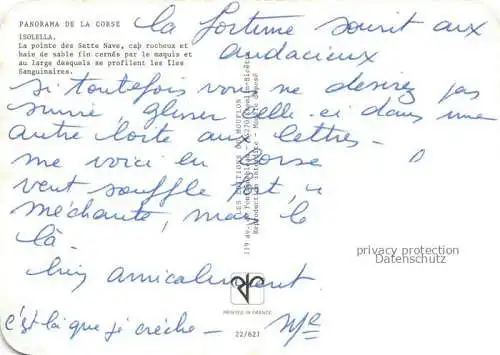 PANORAMA DE LA CORSE
la fortune sourit aux
audacieux
ISOLELLA.
La pointe des Sette Nave, cap rocheux et
baie de sable fin cernés par le maquis et
au large desquels se profilent les Iles
Sanguinaires.
si toutefois vous ne desirez pas
suivre, glisser celle ci dans une
autre boite aux lettres -
me voici en Corse
vent souffle fort,
méchante, mais le
là -
bien amicalement
c'est là que je crèche - 
LES EDITIONS DU MOUFLON
Reproduction interdite
privacy protection
Datenschutz
PRINTED IN FRANCE
22/621